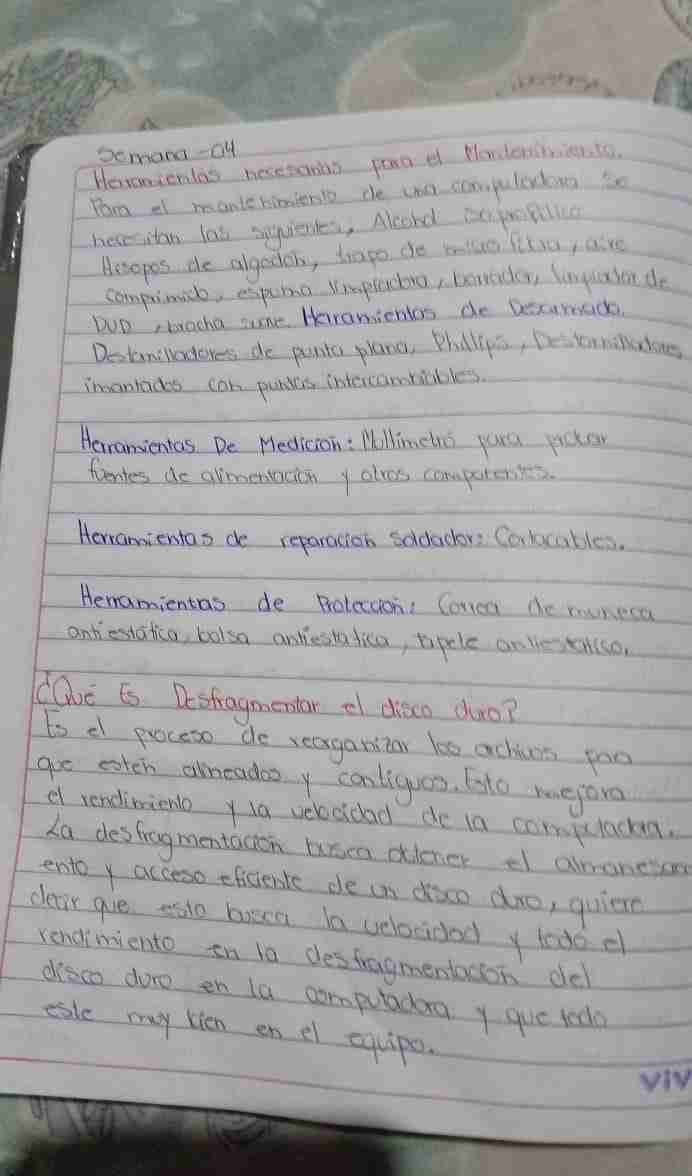 Semana-04
Herramientas necesarias para el Mantenimiento.
Para el mantenimiento de una computadora se
necesitan las siguientes, Alcohol isopropilico
Hisopos de algodón, trapo de micro fibra, aire
comprimido, espuma limpiadora, borrador, limpiador de
DVD, brocha Herramientas de Desarmado.
Destornilladores de punta plana, Phillips, Destornilladores
imantados con puntas intercambiables.
Herramientas De Medicion: Multimetro para
fuentes de alimentación y otros componentes.
Herramientas de reparacion Soldador: Cortacables.
Herramientas de Proteccion: Correa de muneca
antiestática, bolsa antiestatica, tapete antiestatico.
¿Qué Es Desfragmentar el disco duro?
Es el proceso de reorganizar los archivos para
que estén alineados y contiguos. Esto mejora
el rendimiento y la velocidad de la computadora.
La desfragmentación busca obtener el
ento y acceso eficiente de un disco duro, quiere
decir que esto busca la velocidad y todo el
rendimiento en la desfragmentación del
disco duro en la computadora y que todo
este muy bien en el equipo.
VIV